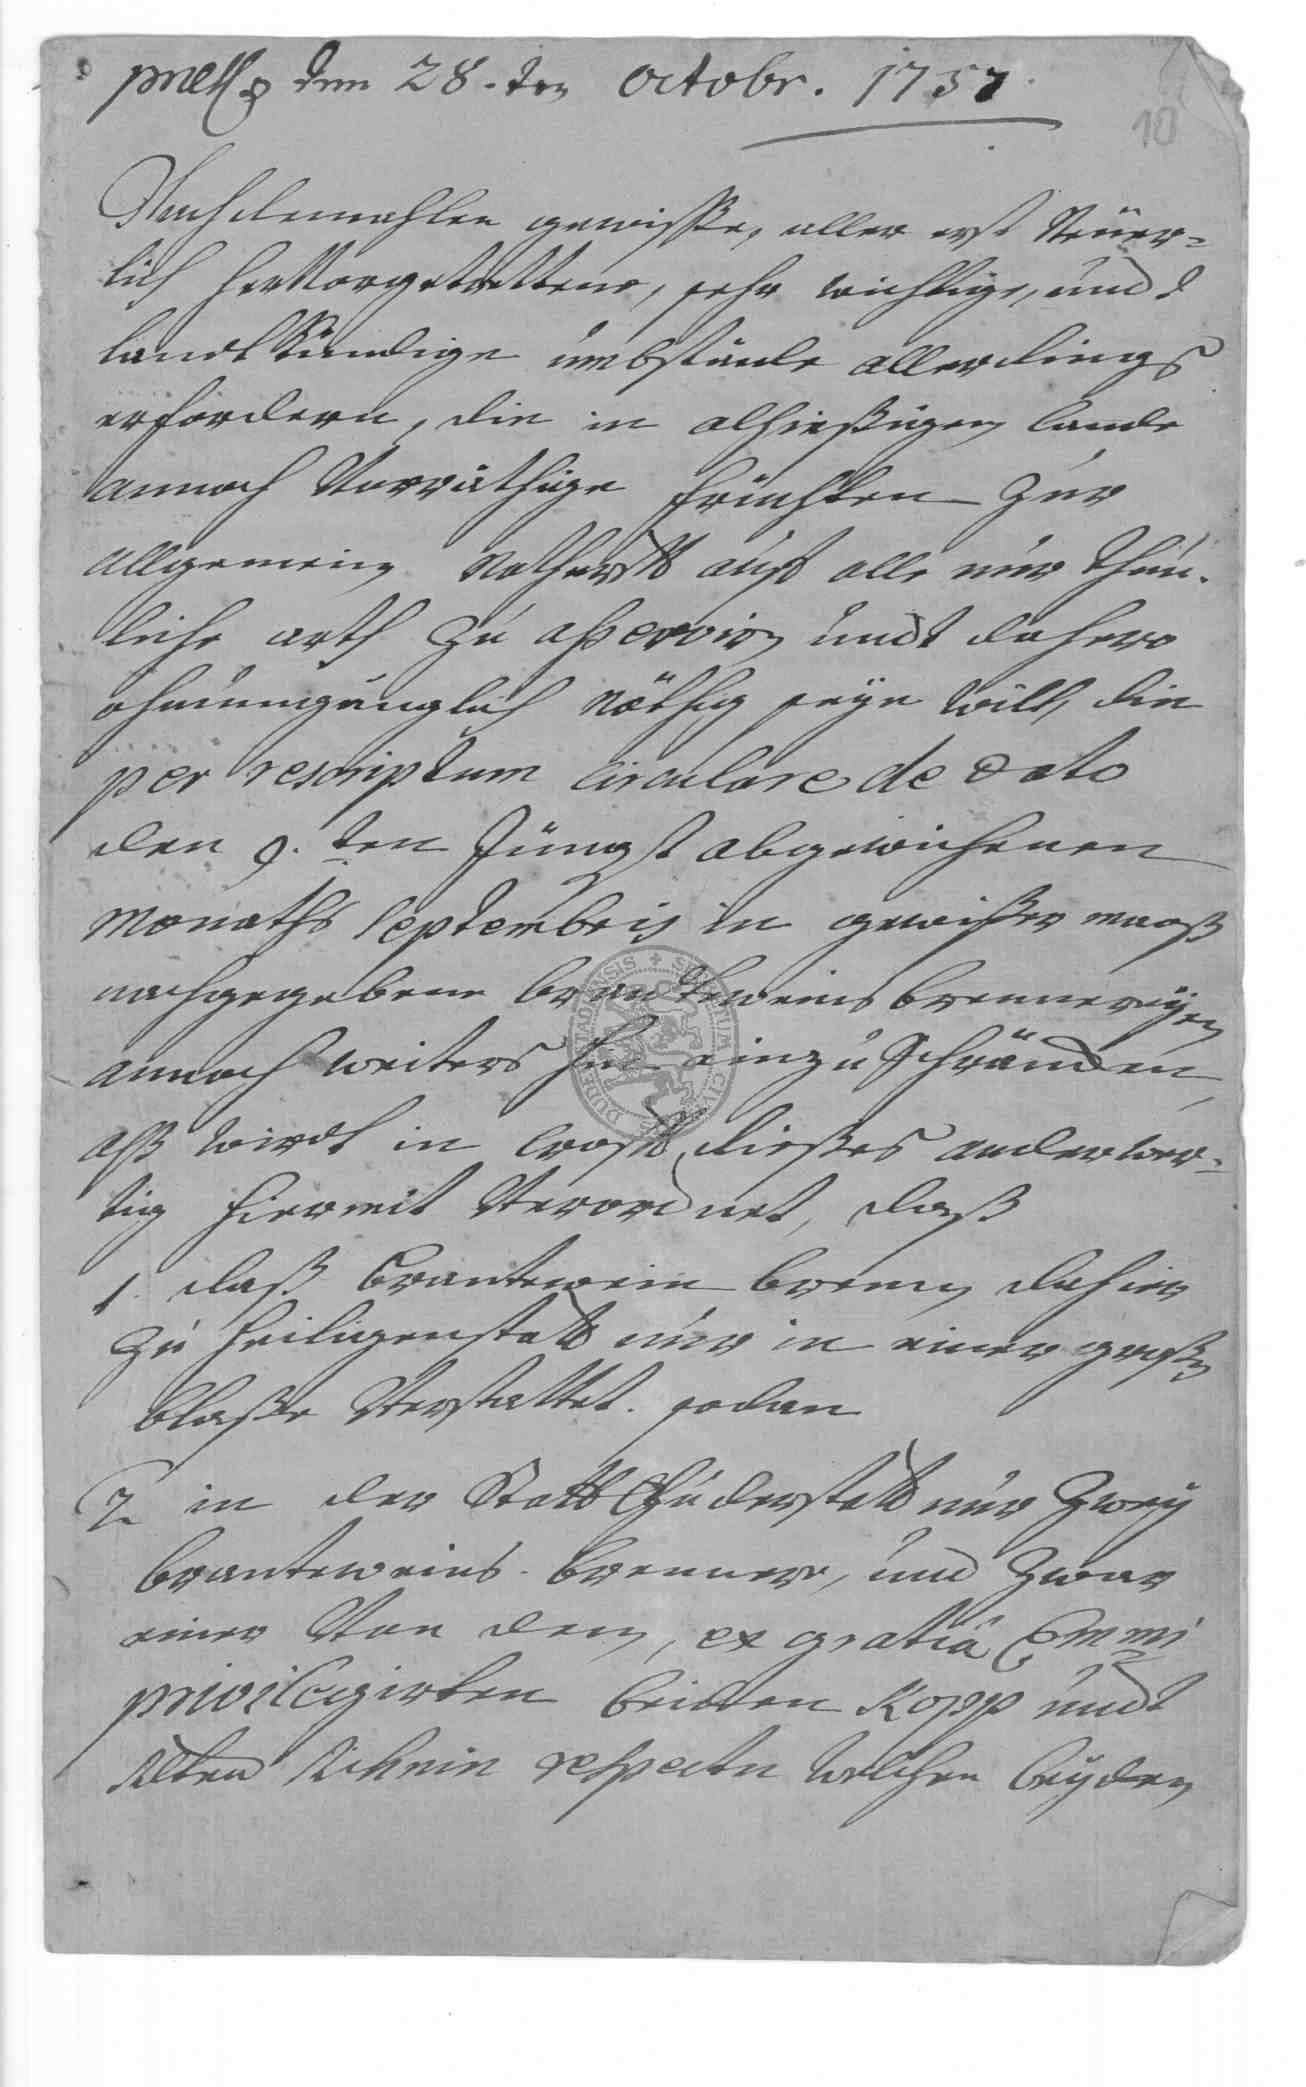 den 28.ten Octobr. 1757
10
Nachdemahlen gewisse, aller erst Neüer=
lich hervorgetrettene, sehr wichtige, und
landtkündige umbstände allerdings
erfordern, die in alhießigen lande
annoch Vorräthige früchten zur
allgemeinen Nothurfft auff alle nur thun-
liche arth zu asservirn undt dahero
ohnumgänglich nöthig seyn will, die
per rescriptum circulare de dato
den 9.ten Jüngst abgewichenen
Monaths Septembris in gewißer maaß
nachgegebene brandtweins brennereyen
annoch weiters hin einzuschräncken,
alß wirdt in krafft dießes anderwer=
tig hiermit Verordnet, daß
1. daß brantewein brenen dahier
zu Heiligenstatt nur in einer großen
blaße Verstattet. sodan
2 in der Statt Duderstatt nur Zwey
branteweins-brenner, und Zwar
einer Von den, ex gratiâ Emmi
privilegirten beiden Kopp undt
respectu welchen beyden
SIGILLUM CIVITATIS DUDERSTADENSIS